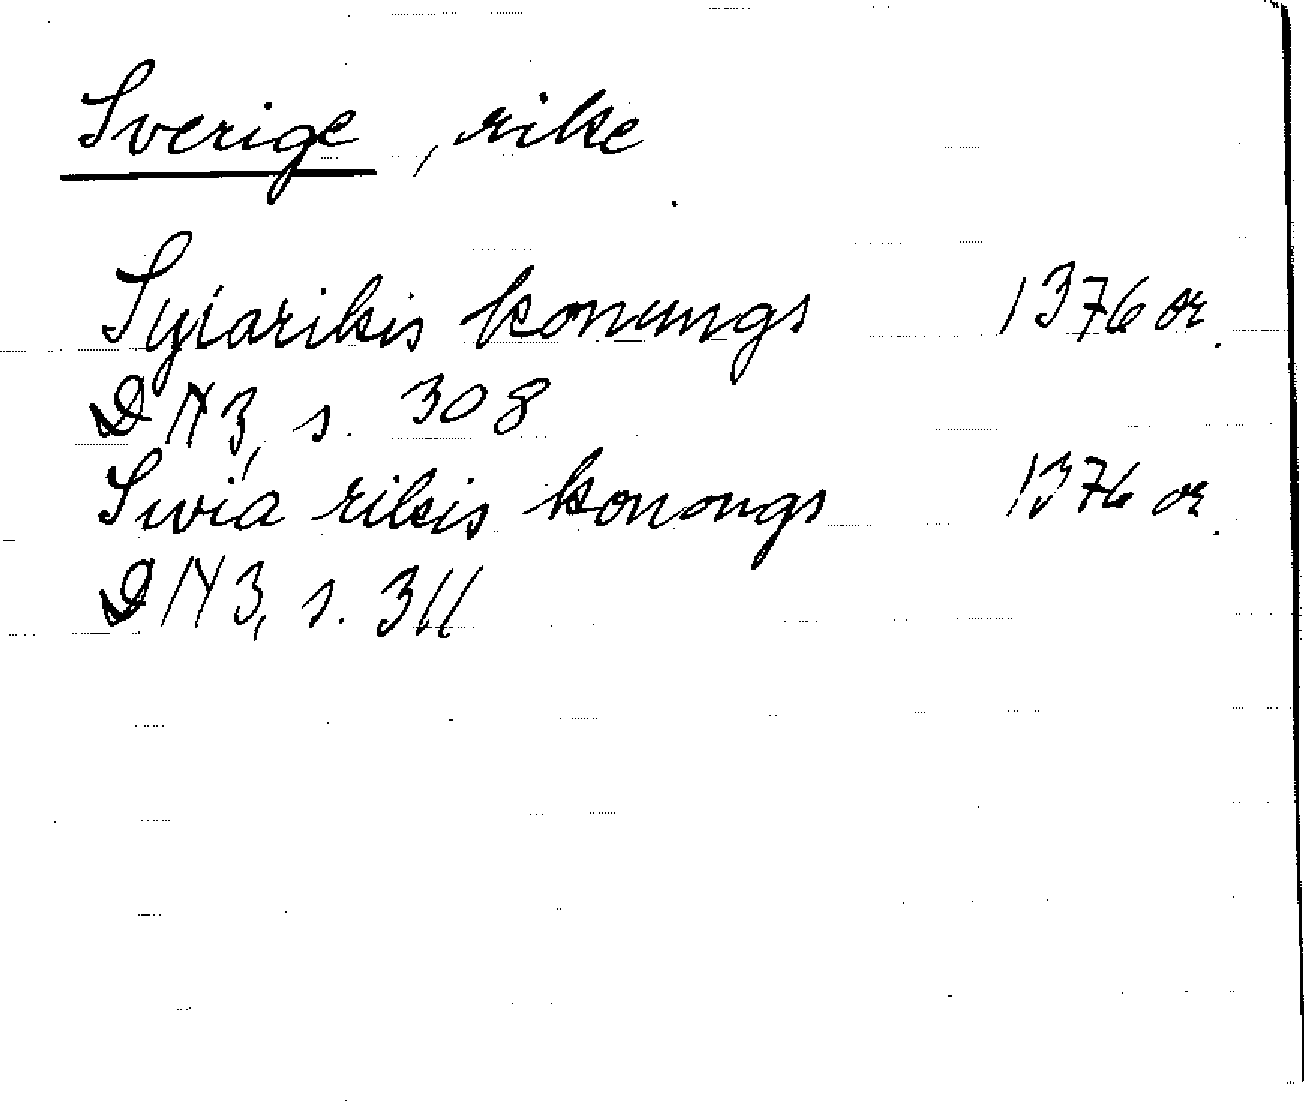 Sverige, rike
Syiarikis konungs 1376 or.
DN 3, s. 308
Swia rikis konongs 1376 or.
DN 3, s. 311